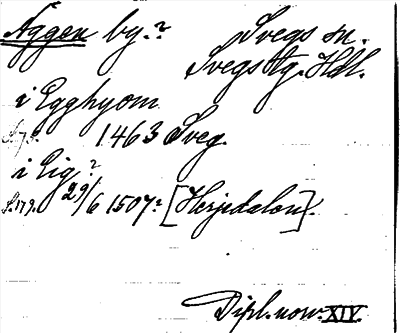 Äggen by.? Svegs sn.
Svegs tg. Hdl.
i Egghyom
S. 78. 1463 Sveg.
i Eig?
S. 179. 29/6 1507? [Herjedalen].
Dipl. norv. XIV.